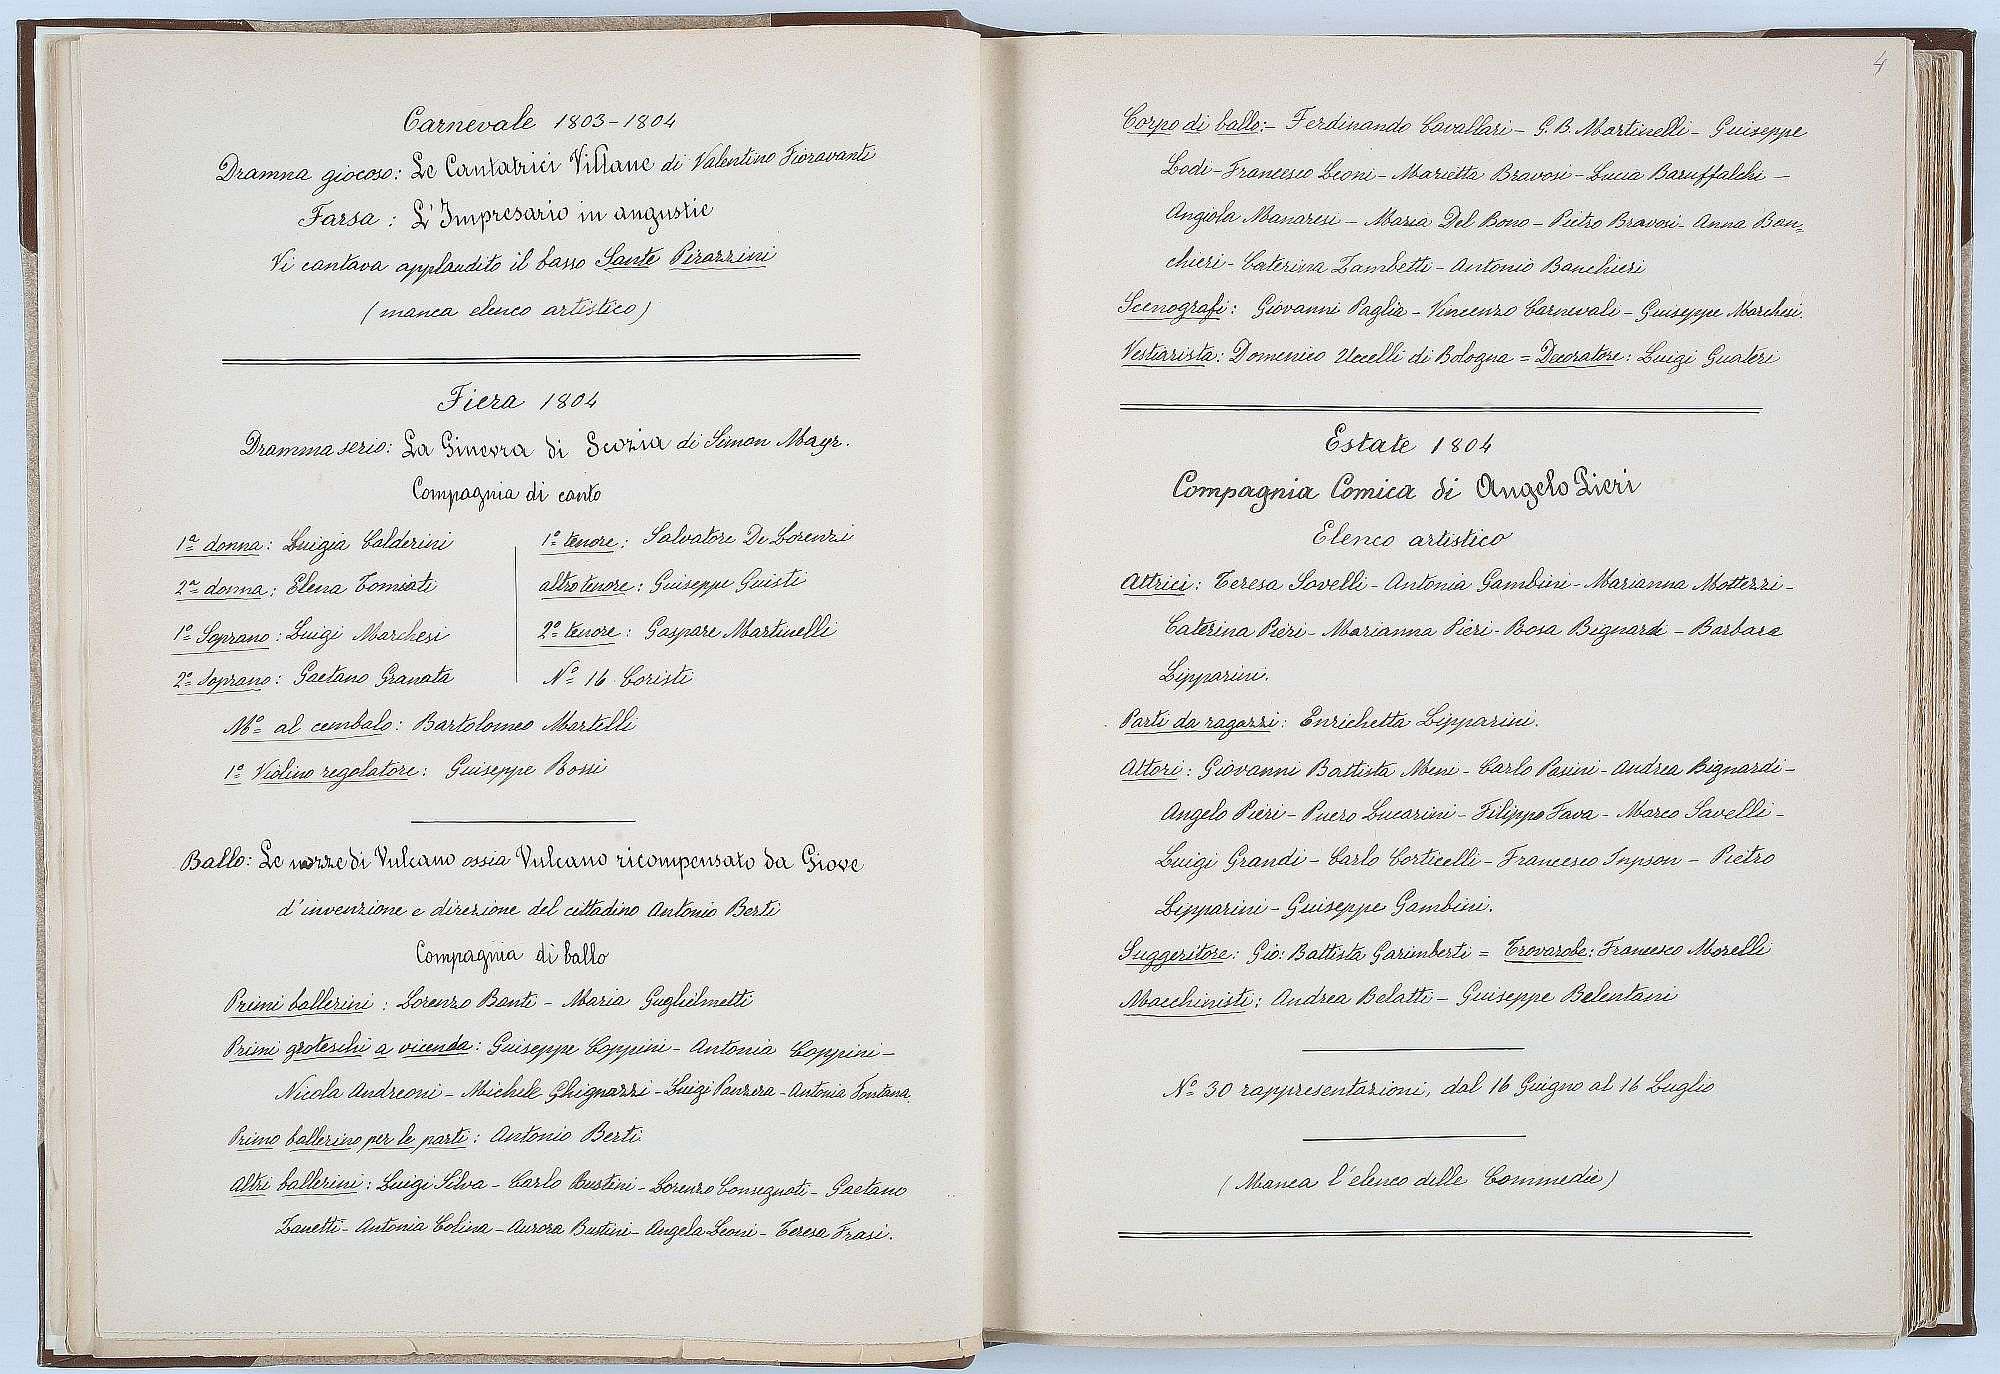 Carnevale 1803-1804
Dramma giocoso: Le Cantatrici Villane di Valentino Fioravanti
Farsa: L'Impresario in angustie
Vi cantava applaudito il basso Sante Pirazzini
(manca elenco artistico)
Fiera 1804
Dramma serio: La Ginevra di Scozia di Simon Mayr.
Compagnia di canto
1ª donna: Luigia Calderini
2ª donna: Elena Tomiati
1º Soprano: Luigi Marchesi
2º Soprano: Gaetano Granata
1º tenore: Salvatore De Lorenzi
altro tenore: Giuseppe Giusti
2º tenore: Gaspare Martinelli
Nº 16 Coristi
Mº al cembalo: Bartolomeo Martelli
1º Violino regolatore: Giuseppe Rossi
Ballo: Le nozze di Vulcano ossia Vulcano ricompensato da Giove
d'invenzione e direzione del cittadino Antonio Berti
Compagnia di ballo
Primi ballerini: Lorenzo Banti - Maria Guglielmetti
Primi groteschi a vicenda: Giuseppe Coppini - Antonia Coppini -
Nicola Andreoni - Michele Ghignazzi - Luigi Panzera - Antonia Fontana.
Primo ballerino per le parti: Antonio Berti.
Altri ballerini: Luigi Silva - Carlo Bustini - Lorenzo Consegnati - Gaetano
Zanetti - Antonia Colina - Aurora Bustini - Angela Leoni - Teresa Frasi.
4
Corpo di ballo:- Ferdinando Cavallari - G.B. Martinelli - Giuseppe
Lodi - Francesco Leoni - Marietta Bravosi - Lucia Baruffalchi -
Angiola Manaresi - Maria Del Bono - Pietro Bravosi - Anna Ban=
chieri - Caterina Zambetti - Antonio Banchieri
Scenografi: Giovanni Paglia - Vincenzo Carnevali - Giuseppe Marchesi.
Vestiarista: Domenico Uccelli di Bologna = Decoratore: Luigi Guateri
Estate 1804
Compagnia Comica di Angelo Pieri
Elenco artistico
Attrici: Teresa Savelli - Antonia Gambini - Marianna Mottezzi -
Caterina Pieri - Marianna Pieri - Rosa Bignardi - Barbara
Lipparini.
Parti da ragazzi: Enrichetta Lipparini.
Attori: Giovanni Battista Meni - Carlo Pasini - Andrea Bignardi -
Angelo Pieri - Piero Lucarini - Filippo Fava - Marco Savelli -
Luigi Grandi - Carlo Corticelli - Francesco Inpson - Pietro
Lipparini - Giuseppe Gambini.
Suggeritore: Gio: Battista Garimberti = Trovarobe: Francesco Morelli
Macchinisti: Andrea Belatti - Giuseppe Belentani
Nº 30 rappresentazioni, dal 16 Giugno al 16 Luglio
(Manca l'elenco delle Commedie)